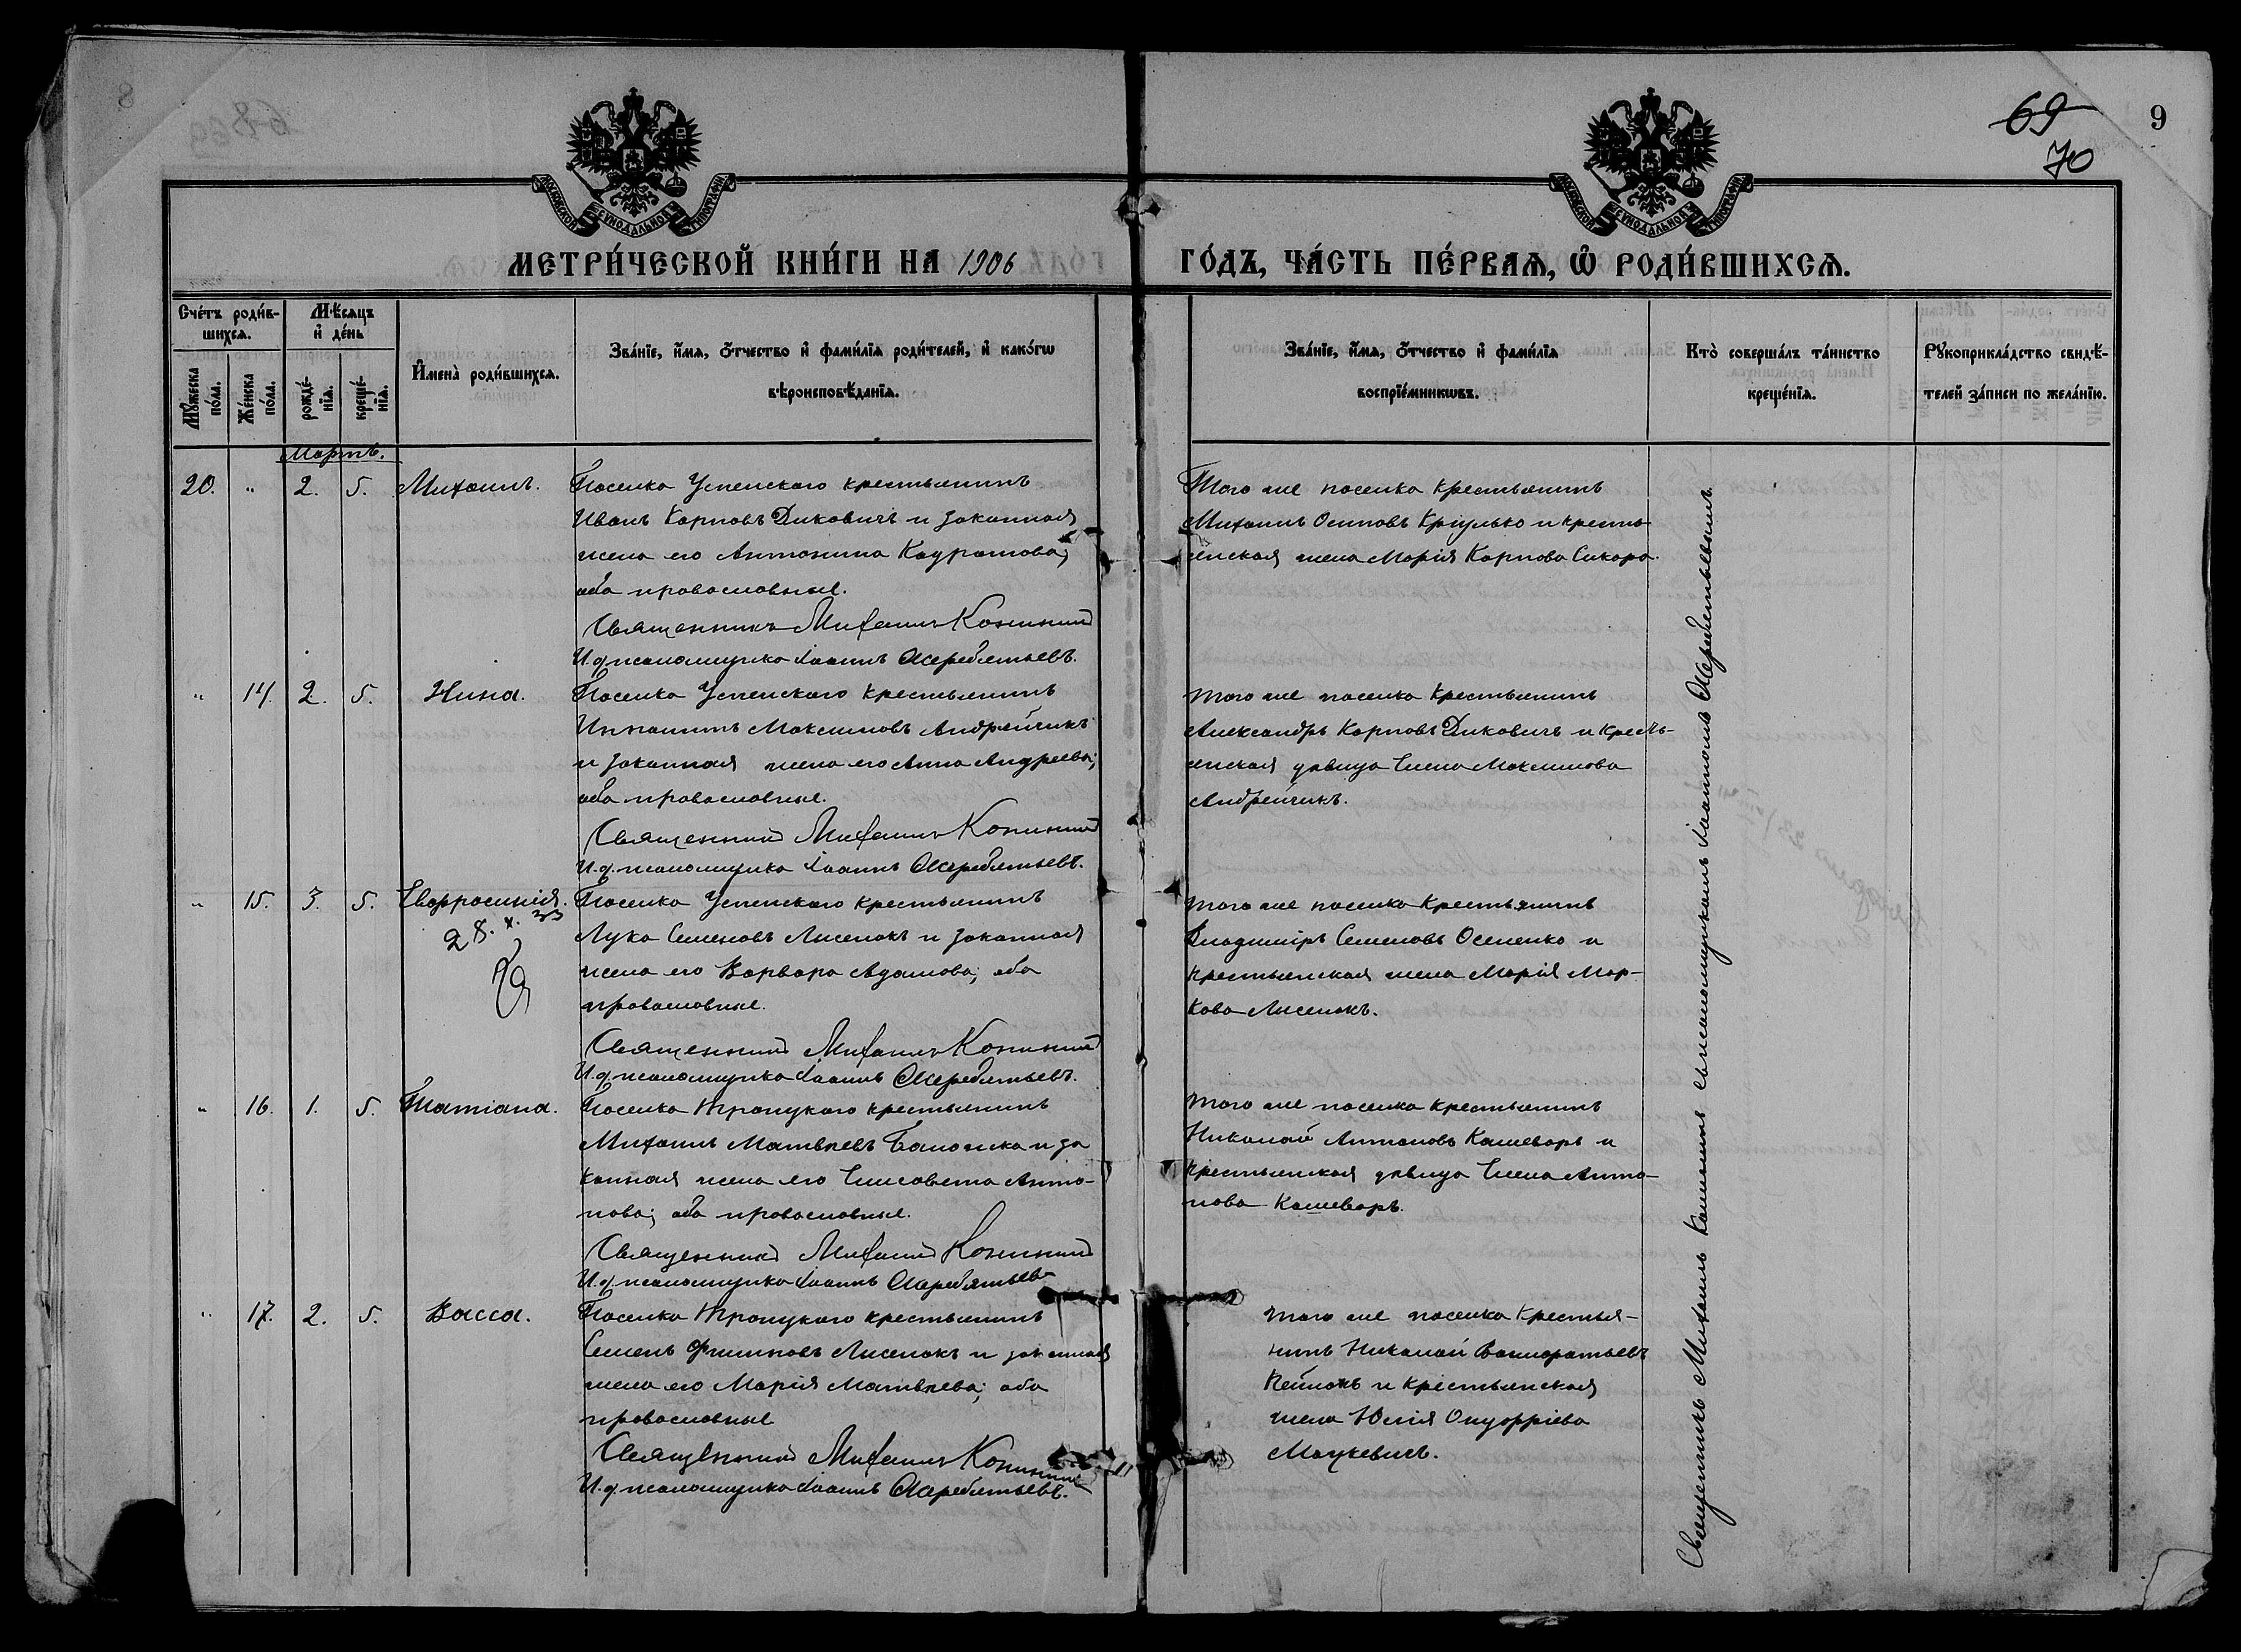 69
70
9
МОСКОВСКОЙ СѴНОДАЛЬНОЙ ТИПОГРАФІИ
МОСКОВСКОЙ СѴНОДАЛЬНОЙ ТИПОГРАФІИ
МЕТРИ́ЧЕСКОЙ КНИ́ГИ НА 1906 ГО́ДЪ, ЧА́СТЬ ПЕ́РВАѦ, Ѡ҆ РОДИ́ВШИХСѦ.
Сче́тъ роди́в-
шихсѧ.
Мꙋ́жеска по́ла.
Же́нска по́ла.
Мѣ́сѧцъ
и҆ де́нь
рожде́-
нїѧ.
креще́-
нїѧ.
И҆мена̀ роди́вшихсѧ.
Зва́нїе, и҆́мѧ, ѻ҆́тчество и҆ фами́лїѧ роди́телей, и҆ како́гѡ
вѣроисповѣ́данїѧ.
Зва́нїе, и҆́мѧ, ѻ҆́тчество и҆ фами́лїѧ
воспрїе́мникѡвъ.
Кто̀ соверша́лъ та́инство
креще́нїѧ.
Рꙋкоприкла́дство свидѣ́-
телей за́писи по жела́нїю.
Мартъ.
20. " 2. 5. Михаилъ.
Поселка Успенскаго крестьянинъ
Иванъ Карповъ Диковичъ и законная
жена его Антонина Кодратова;
оба православные.
Священникъ Михаилъ
И. д. псаломщика Іоаннъ Жеребятьевъ.
Того же поселка крестьянинъ
Михаилъ Осиповъ Кріулько и кресть-
янская жена Марія Карпова Сикора.
" 14. 2. 5. Нина.
Поселка Успенскаго крестьянинъ
Игнатій Максимовъ Андрейчикъ
и законная жена его Анна Андреева;
оба православные.
Священникъ Михаилъ
И. д. псаломщика Іоаннъ Жеребятьевъ.
того же поселка крестьянинъ
Александръ Карповъ Диковичъ и кресть-
янская дѣвица Елена Максимова
Андрейчикъ.
" 15. 3. 5. Евфросинія.
28. X. 33
Поселка Успенскаго крестьянинъ
Лука Семеновъ Лисенокъ и законная
жена его Варвара Адамова; оба
православные.
Священникъ Михаилъ
И. д. псаломщика Іоаннъ Жеребятьевъ.
того же поселка крестьянинъ
Владиміръ Семеновъ Осененко и
крестьянская жена Марія Мар-
кова Лисенокъ.
" 16. 1. 5. Татіана.
Поселка Троицкаго крестьянинъ
Михаилъ Матвѣевъ и за
конная жена его Елисавета Анто-
нова; оба православные.
Священникъ Михаилъ
И. д. псаломщика Іоаннъ Жеребятьевъ
того же поселка крестьянинъ
Николай Антоновъ Кашеваръ и
крестьянская дѣвица Елена Анто-
нова Кашеваръ.
" 17. 2. 5. Васса.
Поселка Троицкаго крестьянинъ
Семенъ Филиповъ Лисенокъ и законная
жена его Марія Матвѣева; оба
православные
Священникъ Михаилъ
И. д. псаломщика Іоаннъ Жеребятьевъ.
того же поселка крестья-
нинъ Николай
и крестьянская
жена Юлія Онуфріева
Мацкевичъ.
Священникъ Михаилъ съ псаломщикомъ Іоанномъ Жеребятьевымъ